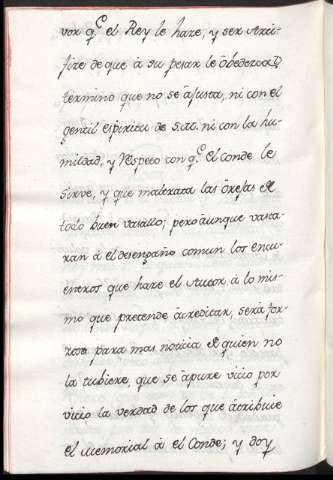 vor q.e el Rey le haze, y ser Arti-
fize de que à su pesar le òbedezca
termino que no se àjusta, ni con el
gentil espiritu de S.M. ni con la hu-
mildad, y respeto con q.e el Conde le
sirve, y que maltrata las òrejas de
todo buen vasallo; pero àunque vasta-
ran à el desengaño comun los encu-
entros que haze el Autor à lo mis-
mo que pretende àcreditar, serà for-
zoso para mas noticia de quien no
la tubiere, que se àpure vicio por
vicio la verdad de los que àtribuie
el Memorial à el Conde; y doy